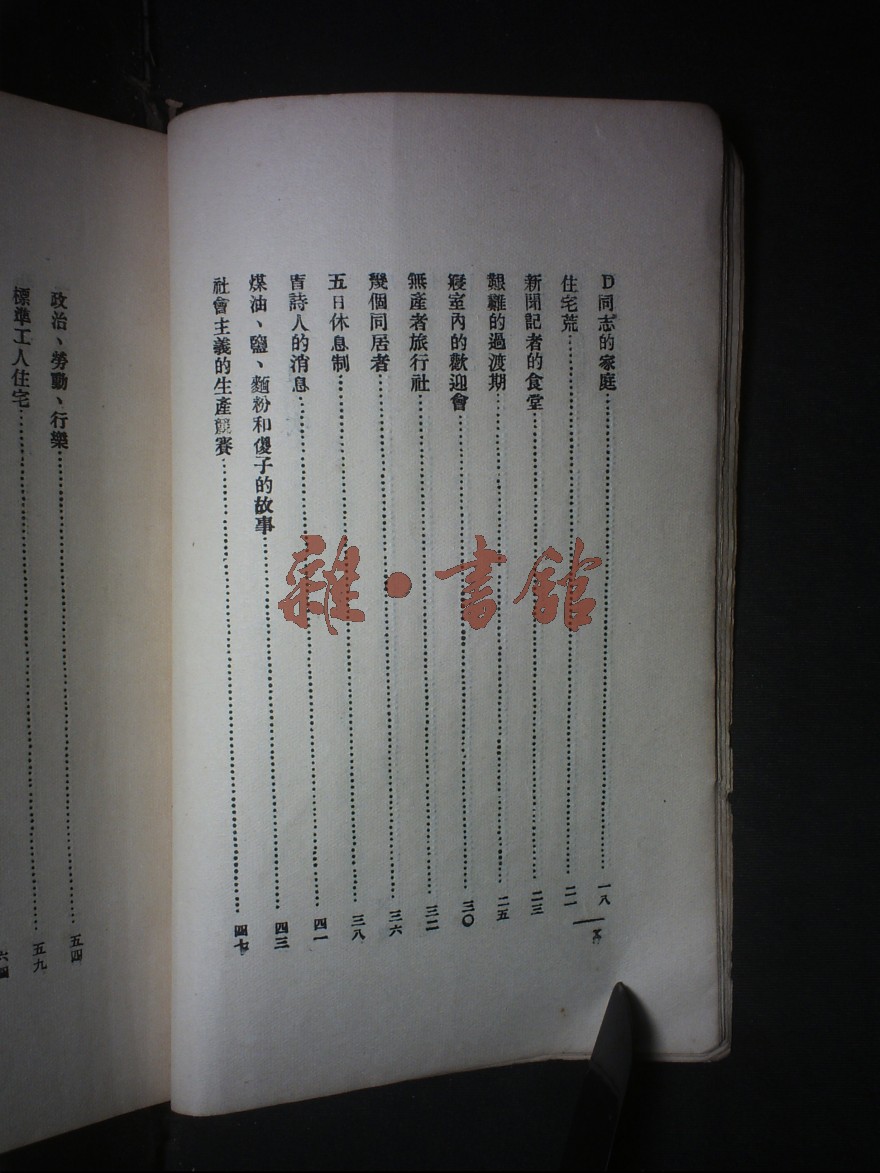 D同志的家庭…一八
住宅荒…二一
新聞記者的食堂…二三
艱難的過渡期…二五
寢室內的歡迎會…三〇
無產者旅行社…三二
幾個同居者…三六
五日休息制…三八
盲詩人的消息…四一
煤油、鹽、麵粉和傻子的故事…四三
社會主義的生產競賽…四七
政治、勞動、行樂…五四
標準工人住宅…五九
六四
雜·書館